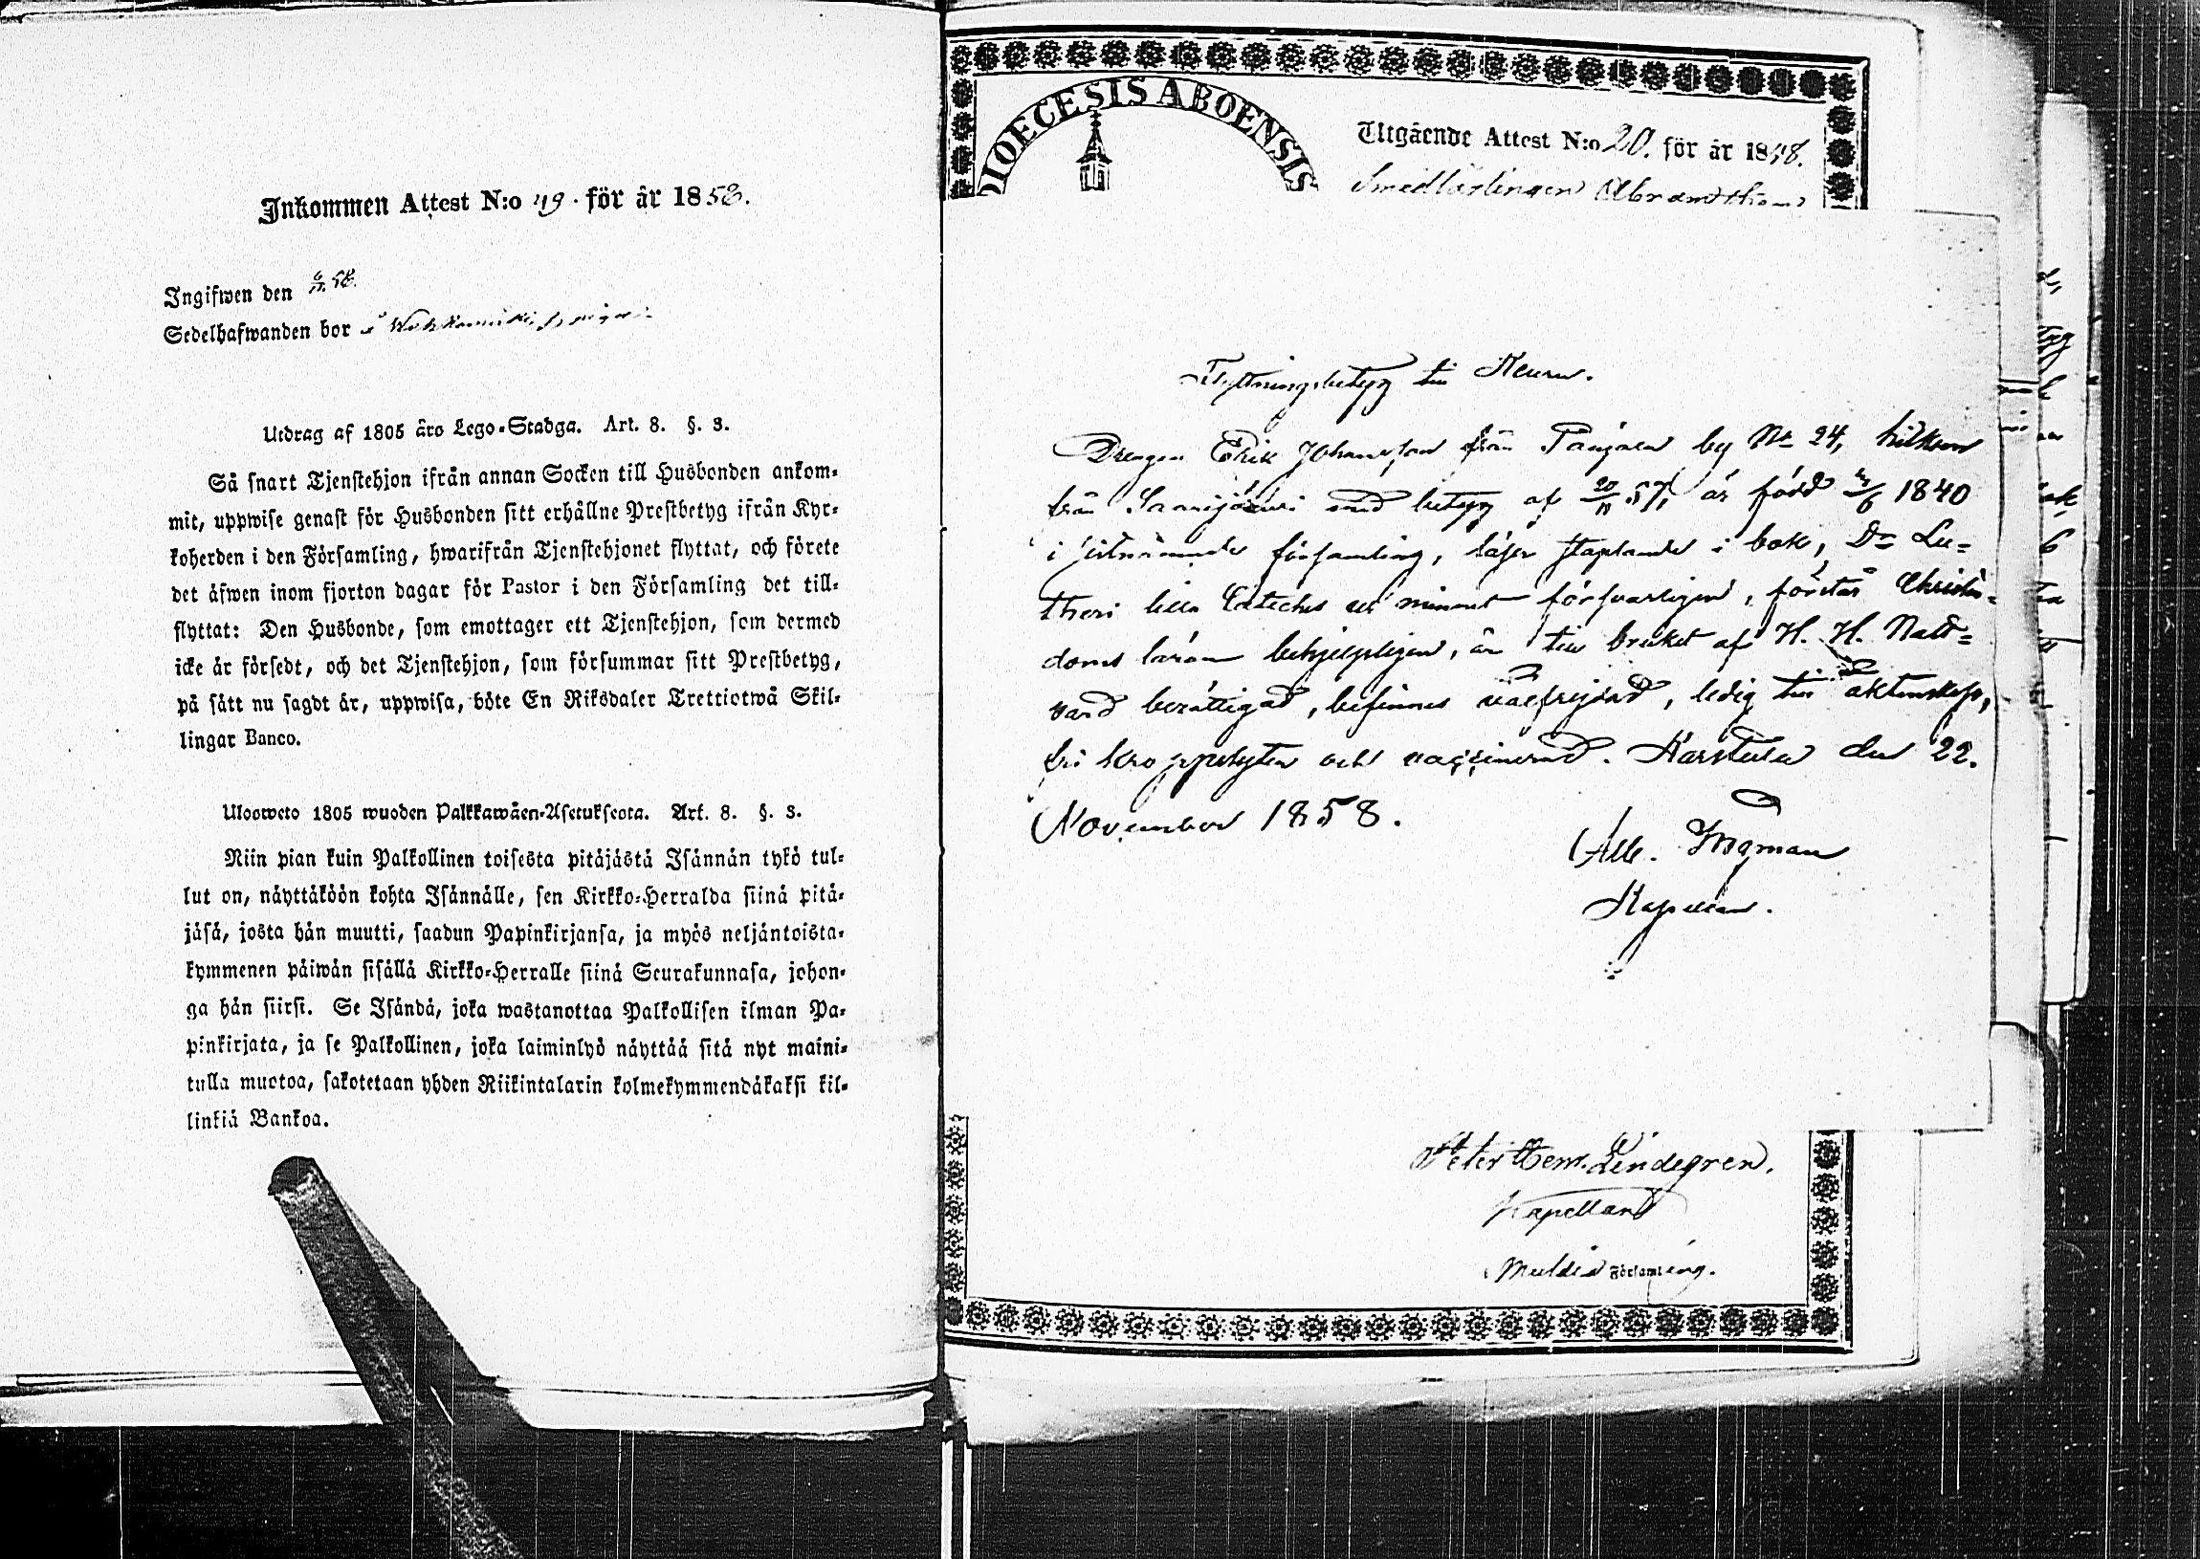 Inkommen Attest N:o 49. för år 1858.
Ingifwen den 6/12 58.
Sedelhafwanden bor i
Utdrag af 1805 års Lego-Stadga. Art. 8. §. 3.
Så snart Tjenstehjon ifrån annan Socken till Husbonden ankom-
mit, uppwise genast för Husbonden sitt erhållne Prestbetyg ifrån Kyr-
koherden i den Församling, hwarifrån Tjenstehjonet flyttat, och förete
det äfwen inom fjorton dagar för Pastor i den Församling det till-
flyttat: Den Husbonde, som emottager ett Tjenstehjon, som dermed
icke är försedt, och det Tjenstehjon, som försummar sitt Prestbetyg,
på sätt nu sagdt är, uppwisa, böte En Riksdaler Trettiotwå Skil-
lingar Banco.
Ulosweto 1805 wuoden Palkkawäen-Asetuksesta. Art. 8. §. 3.
Niin pian kuin Palkollinen toisesta pitäjästä Isännän tykö tul-
lut on, näyttäköön kohta Isännälle, sen Kirkko-Herralda siinä pitä-
jäsä, josta hän muutti, saadun Papinkirjansa, ja myös neljäntoista-
kymmenen päiwän sisällä Kirkko-Herralle siinä Seurakunnasa, johon-
ga hän siirsi. Se Isändä, joka wastanottaa Palkollisen ilman Pa-
pinkirjata, ja se Palkollinen, joka laiminlyö näyttää sitä nyt maini-
tulla muotoa, sakotetaan yhden Riikintalarin kolmekymmendäkaksi kil-
linkiä Bankoa.
DIOECESIS ABOENSIS
Utgående Attest N:o 20. för år 1848.
Smedlärlingen
Flyttningsbetyg till Keuru.
Drengen Erik Johansson från by No 24, hvilken
från Saarijärvi med betyg af 20/11 57, är född 1840
i sistnämnde församling, läser staplande i bok, Dr Lu=
theri lilla Cateches ur minnet försvarligen, förstår Christen=
doms läran behjelpligen, är till bruket af H. H. Natt=
vard berättigad, befinnes välfrejdad, ledig till äktenskap,
fri kroppslyten och vaccinerad. Karstula den 22.
November 1858.
Alb. Ingman
Kapellan.
Peter Hem. Lindegren.
Kapellan
Muldia Församling.